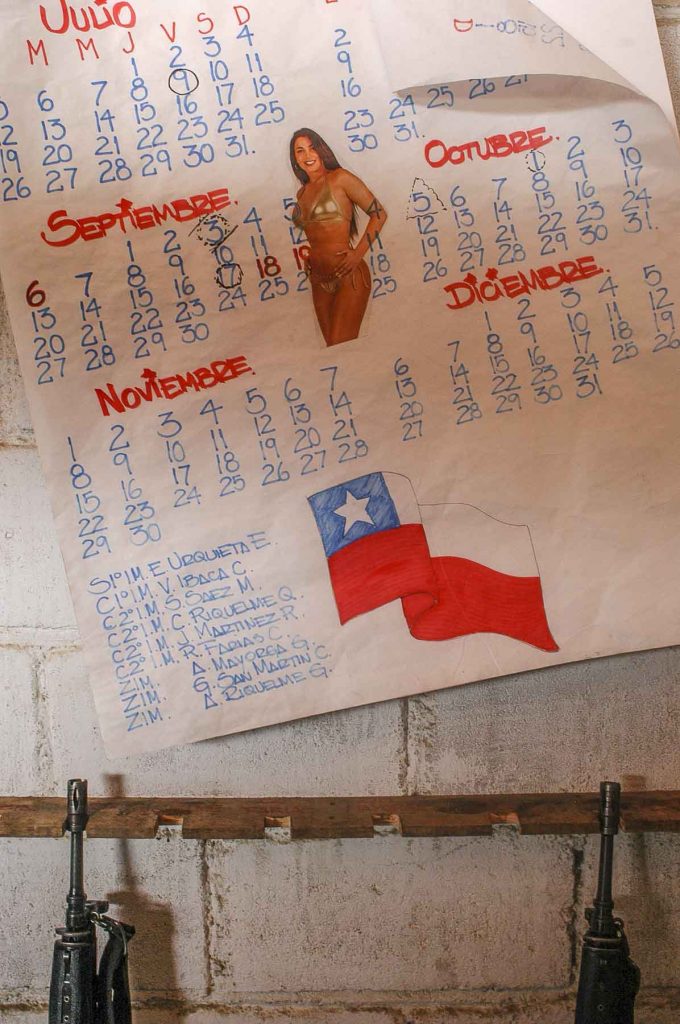 Julio
M M J V S D
1 2 3 4
6 7 8 9 10 11
12 13 14 15 16 17 18
19 20 21 22 23 24 25
26 27 28 29 30 31.
2
9
16
23 24 25 26 27
30 31.
Septiembre.
1 2 3 4 5
6 7 8 9 10 11 12
13 14 15 16 17 18 19
20 21 22 23 24 25
27 28 29 30
Octubre.
1 2 3
4 5 6 7 8 9 10
11 12 13 14 15 16 17
18 19 20 21 22 23 24
25 26 27 28 29 30 31.
Noviembre.
1 2 3 4 5 6 7
8 9 10 11 12 13 14
15 16 17 18 19 20 21
22 23 24 25 26 27 28
29 30
Diciembre.
1 2 3 4 5
6 7 8 9 10 11 12
13 14 15 16 17 18 19
20 21 22 23 24 25 26
27 28 29 30 31
S1º I.M. E. Urquieta E.
C1º I.M. V. Ibaca C.
C2º I.M. S. Saez M.
C2º I.M. C. Riquelme Q.
C2º I.M. J. Martinez R.
C2º I.M. R. Farias C.
ZIM. A. Mayorga G.
ZIM. G. San Martin C.
ZIM. A. Riquelme G.